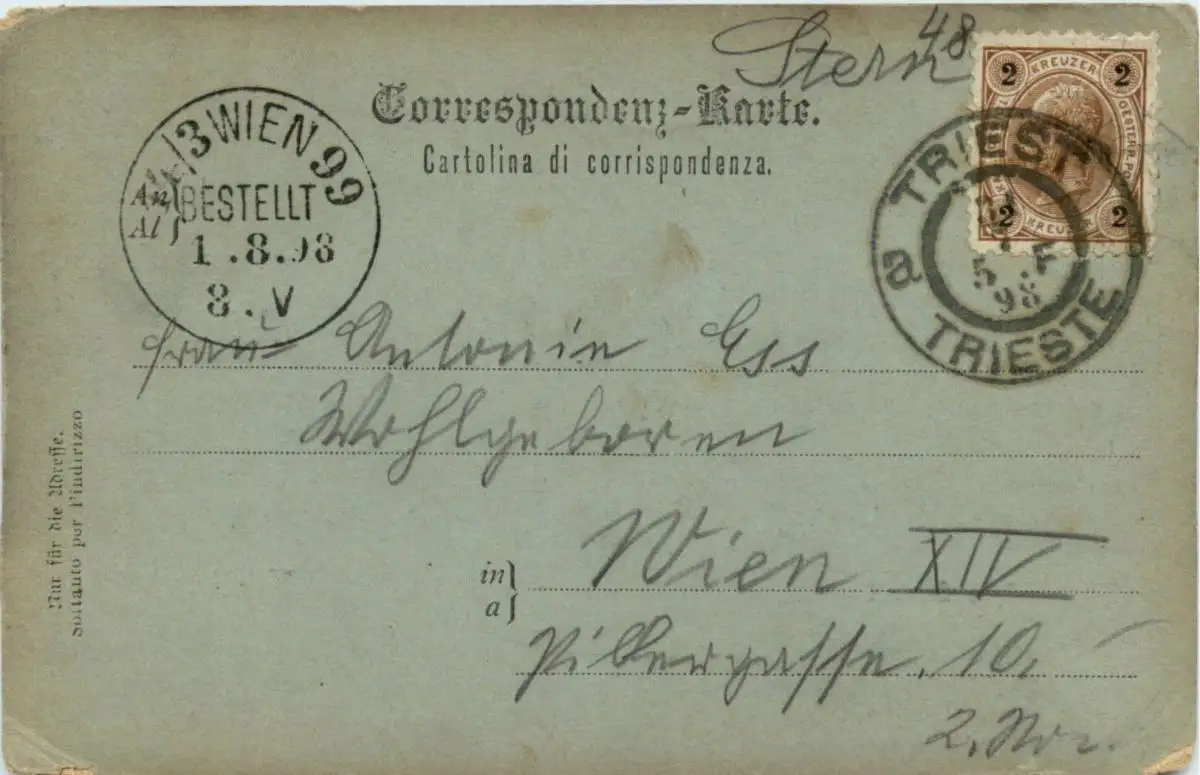 Stern 48
Correspondenz-Karte.
Cartolina di corrispondenza.
2 KREUZER 2
2 KREUZER 2
TRIEST
5 F
98
a TRIESTE
3 WIEN 99
BESTELLT
1.8.98
8.V
An
Al
Frau Antonie Ess
Wohlgeboren
in
a
Wien XIV
10.
2.
Nur für die Adresse.
Soltanto per l'indirizzo